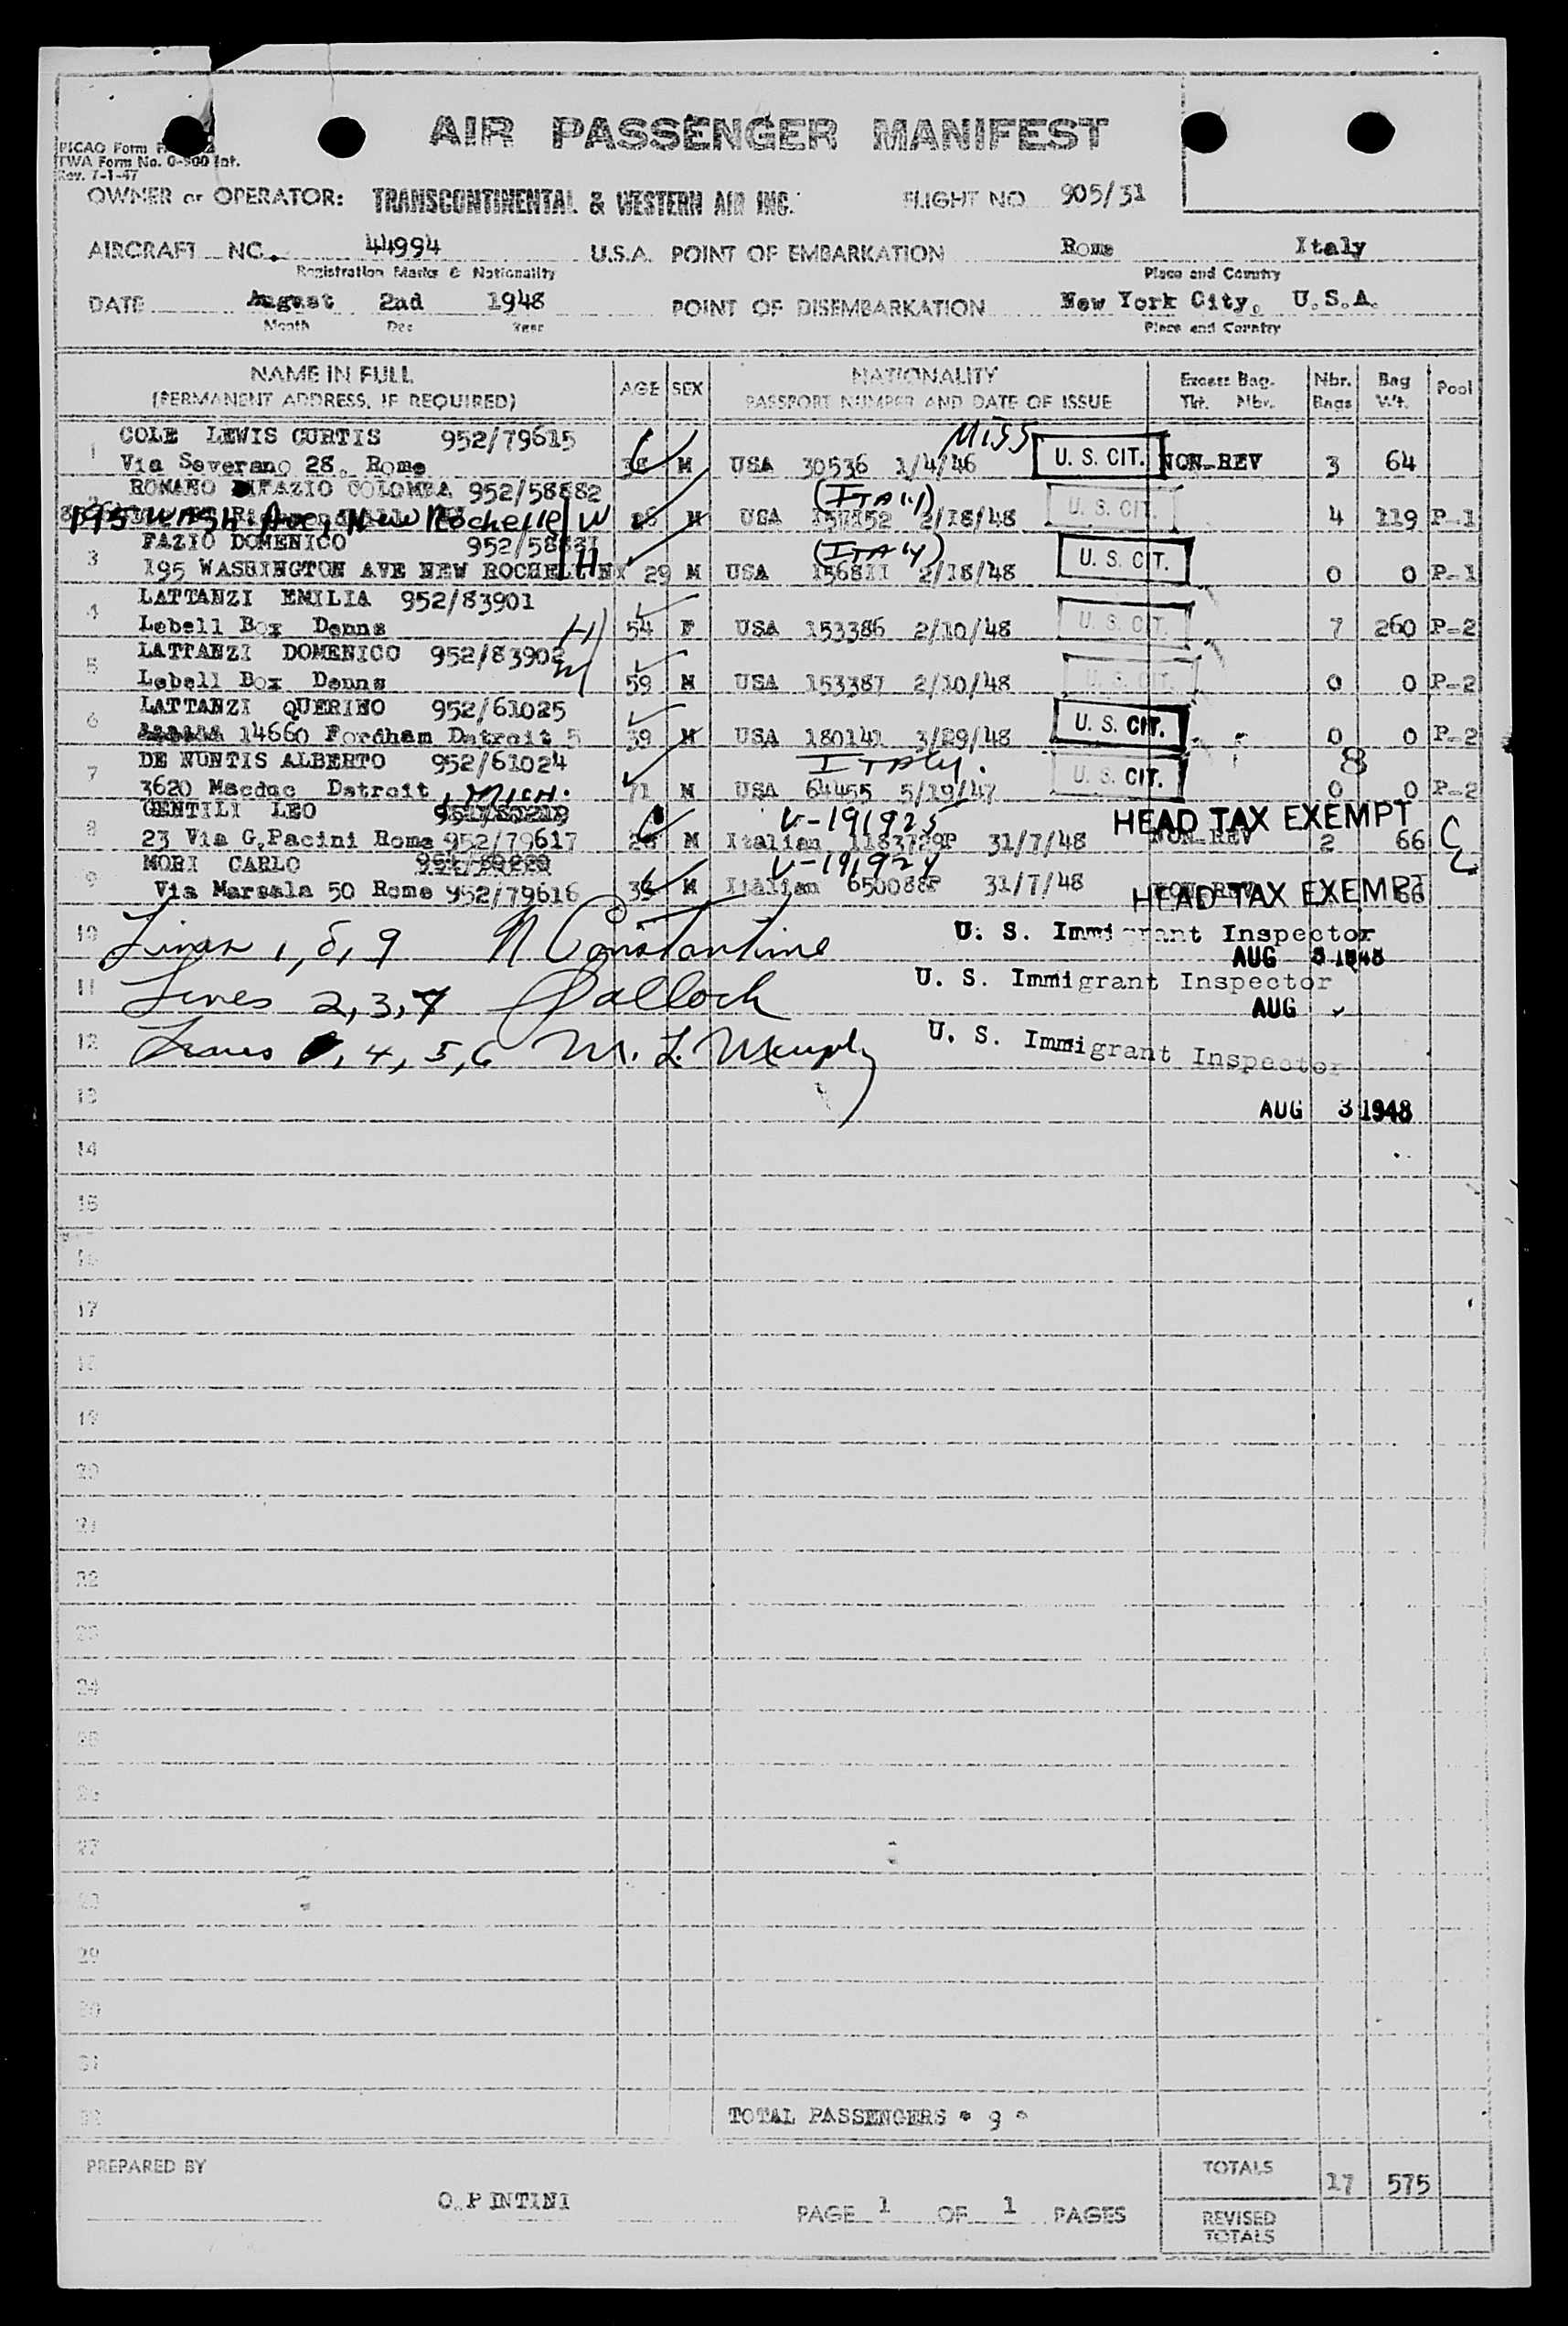 AIR PASSENGER MANIFEST
PICAO Form
TWA Form No. 0-500 Int.
Rev. 7-1-47
OWNER or OPERATOR: TRANSCONTINENTAL & WESTERN AIR INC. FLIGHT NO 905/31
AIRCRAFT NO. 44994 U.S.A. POINT OF EMBARKATION Rome Italy
Registration Marks & Nationality Place and Country
DATE August 2nd 1948 POINT OF DISEMBARKATION New York City, U.S.A.
Month Day Year Place and Country
NAME IN FULL AGE SEX NATIONALITY Excess Bag. Nbr. Bag Pool
(PERMANENT ADDRESS, IF REQUIRED) PASSPORT NUMBER AND DATE OF ISSUE Tkt. Nbr. Bags Wt.
COLE LEWIS CURTIS 952/79615 MISS
1 Via Severano 28, Rome 38 M USA 30536 1/4/46 U. S. CIT. NON-REV 3 64
ROMANO DIFAZIO COLOMBA 952/58882 (ITALY)
195 WASH. Ave, New Rochelle W M USA 157152 2/18/48 U. S. CIT. 4 119 P-1
FAZIO DOMENICO 952/58881 H (ITALY)
3 195 WASHINGTON AVE NEW ROCHELLE NY 29 M USA 156811 2/18/48 U. S. CIT. 0 0 P-1
LATTANZI EMILIA 952/83901
4 Lebell Box Denns H 54 F USA 153386 2/10/48 U. S. CIT. 7 260 P-2
LATTANZI DOMENICO 952/83902
5 Lebell Box Denns W 59 M USA 153387 2/10/48 U. S. CIT. 0 0 P-2
LATTANZI QUERINO 952/61025
6 14660 Fordham Detroit 5 39 M USA 180141 3/29/48 U. S. CIT. 0 0 P-2
DE NUNTIS ALBERTO 952/61024 ITALY. 8
7 3620 Macduc Detroit, MICH. 71 M USA 64455 5/19/47 U. S. CIT. 0 0 P-2
GENTILI LEO V-191925 HEAD TAX EXEMPT
8 23 Via G.Pacini Rome 952/79617 28 M Italian 1183729P 31/7/48 NON-REV 2 66
MORI CARLO V-191924
9 Via Marsala 50 Rome 952/79616 M Italian 650088P 31/7/48 HEAD TAX EXEMPT
10 Lines 1, 8, 9 N Constantine U. S. Immigrant Inspector
AUG 3 1948
11 Lines 2, 3, 7 U. S. Immigrant Inspector
AUG
12 Lines 4, 5, 6 M. L. Murphy U. S. Immigrant Inspector
13 AUG 3 1948
14
15
16
17
18
19
20
21
22
23
24
25
26
27
28
29
30
31
32 TOTAL PASSENGERS * 9 *
PREPARED BY O. PINTINI PAGE 1 OF 1 PAGES TOTALS 17 575
REVISED
TOTALS